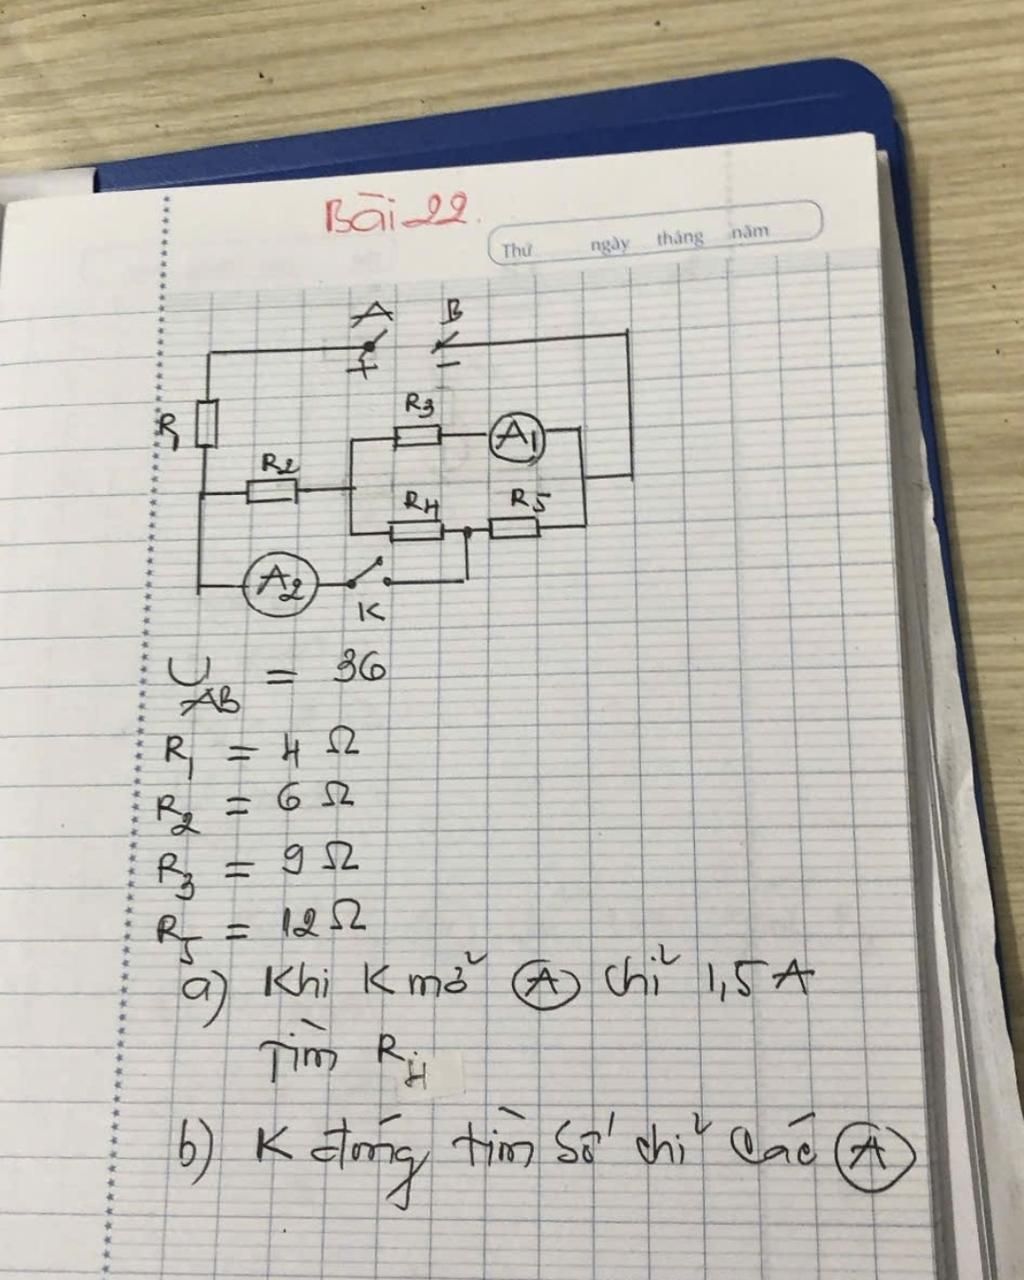 Bài 22.
Thứ ngày tháng năm
A B
+ −
R1
R3
A1
R2
R4
R5
A2
K
U AB = 36
R1 = 4 Ω
R2 = 6 Ω
R3 = 9 Ω
R5 = 12 Ω
a) Khi K mở A chỉ 1,5 A
Tìm R4
b) K đóng tìm số chỉ các A